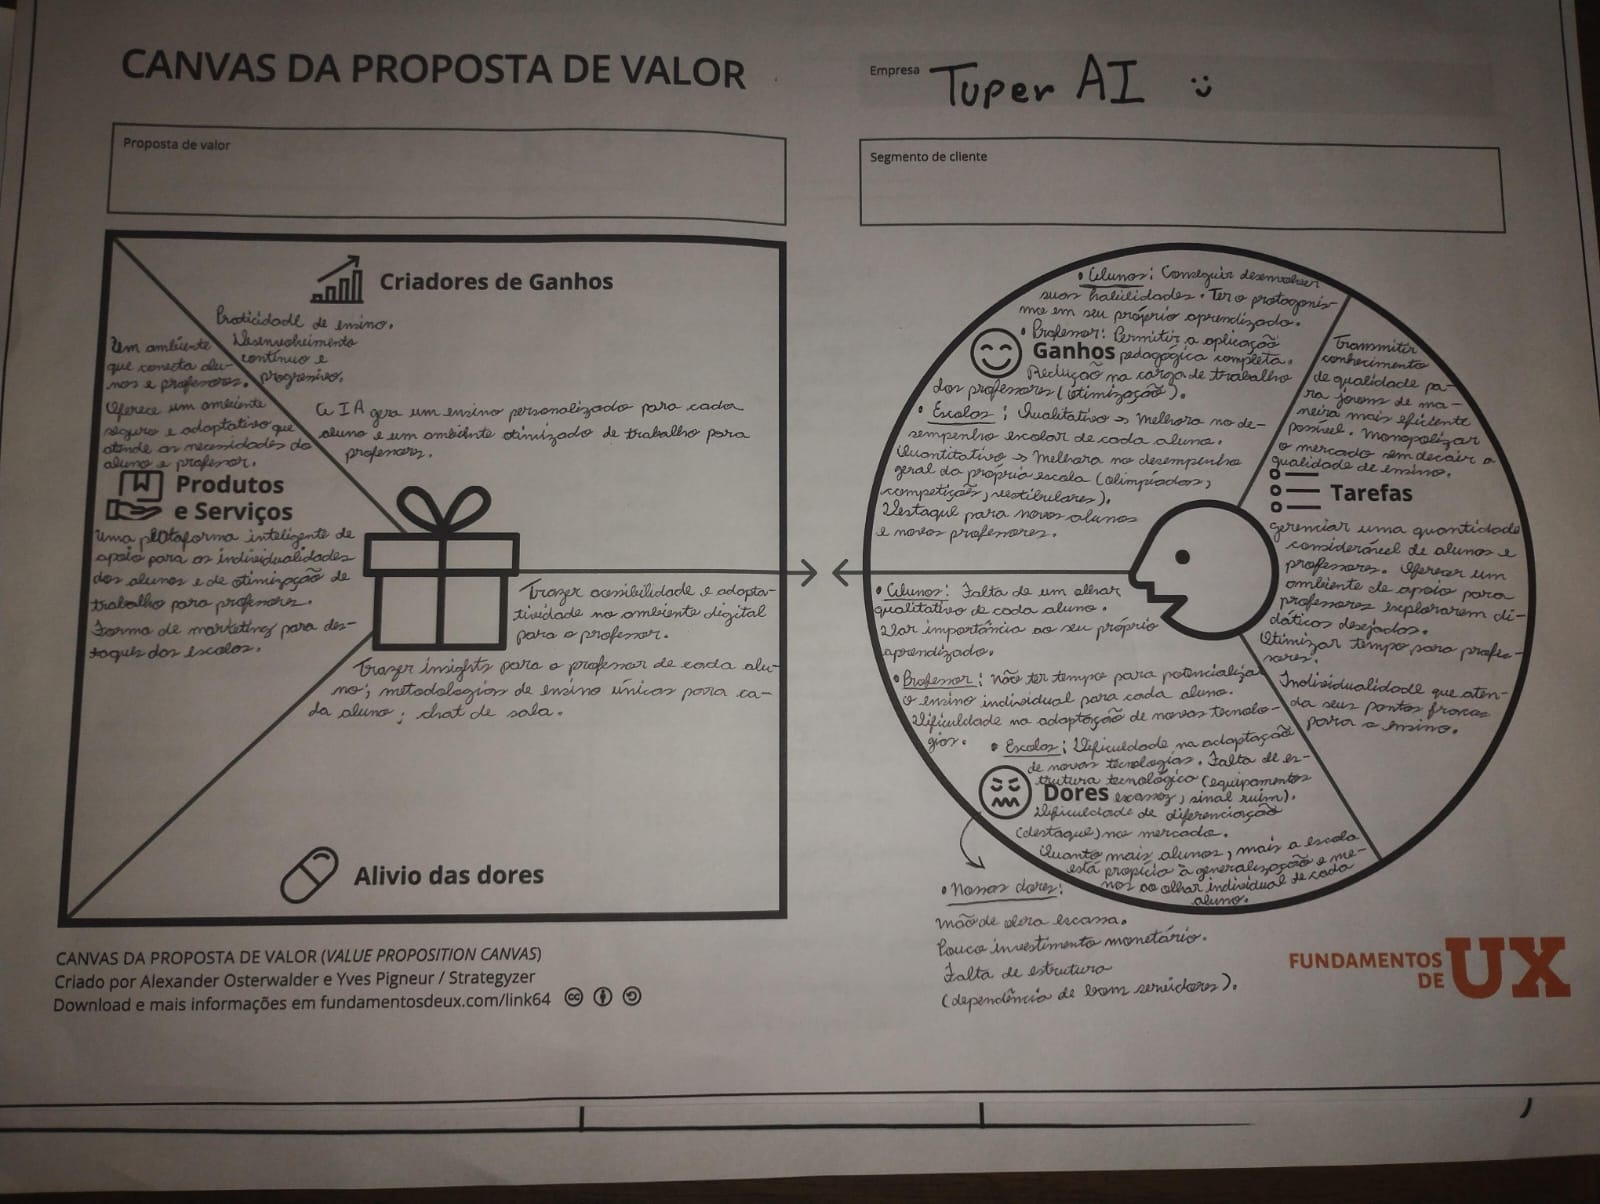 CANVAS DA PROPOSTA DE VALOR
Empresa Tuper AI
Proposta de valor
Segmento de cliente
Criadores de Ganhos
Praticidade de ensino.
Desenvolvimento
contínuo e
progressivo.
A IA gera um ensino personalizado para cada
aluno e um ambiente otimizado de trabalho para
professores.
Um ambiente
que conecta alu-
nos e professores.
Oferece um ambiente
seguro e adaptativo que
atende as necessidades do
aluno e professor.
Produtos
e Serviços
Uma plataforma inteligente de
apoio para as individualidades
dos alunos e de otimização de
trabalho para professores.
Forma de marketing para des-
taques das escolas.
Trazer acessibilidade e adapta-
tividade no ambiente digital
para o professor.
Trazer insights para o professor de cada alu-
no; metodologias de ensino únicas para ca-
da aluno; chat de sala.
Alivio das dores
• Alunos: Conseguir desenvolver
suas habilidades. Ter o protagonis-
mo em seu próprio aprendizado.
• Professor: Permitir a aplicação
Ganhos pedagógica completa.
Redução na carga de trabalho
dos professores (otimização).
• Escolas: Qualitativo → Melhora no de-
sempenho escolar de cada aluno.
Quantitativo → Melhora no desempenho
geral da própria escola (olimpíadas,
competições, vestibulares).
Destaque para novos alunos
e novos professores.
Transmitir
conhecimento
de qualidade pa-
ra jovens de ma-
neira mais eficiente
possível. Monopolizar
o mercado sem decair a
qualidade de ensino.
Tarefas
Gerenciar uma quantidade
considerável de alunos e
professores. Oferecer um
ambiente de apoio para
professores explorarem di-
dáticas desejadas.
Otimizar tempo para profes-
sores.
Individualidade que aten-
da seus pontos fracos
para o ensino.
• Alunos: Falta de um olhar
qualitativo de cada aluno.
Dar importância ao seu próprio
aprendizado.
• Professor: não ter tempo para potencializar
o ensino individual para cada aluno.
Dificuldade na adaptação de novas tecnolo-
gias.
• Escolas: Dificuldade na adaptação
de novas tecnologias. Falta de es-
trutura tecnológica (equipamentos
Dores escassos, sinal ruim).
Dificuldade de diferenciação
(destaque) no mercado.
Quanto mais alunos, mais a escola
está propícia à generalização e me-
nos ao olhar individual de cada
aluno.
• Nossas dores:
mão de obra escassa.
Pouco investimento monetário.
Falta de estrutura
(dependência de bons servidores).
CANVAS DA PROPOSTA DE VALOR (VALUE PROPOSITION CANVAS)
Criado por Alexander Osterwalder e Yves Pigneur / Strategyzer
Download e mais informações em fundamentosdeux.com/link64
FUNDAMENTOS
DE UX